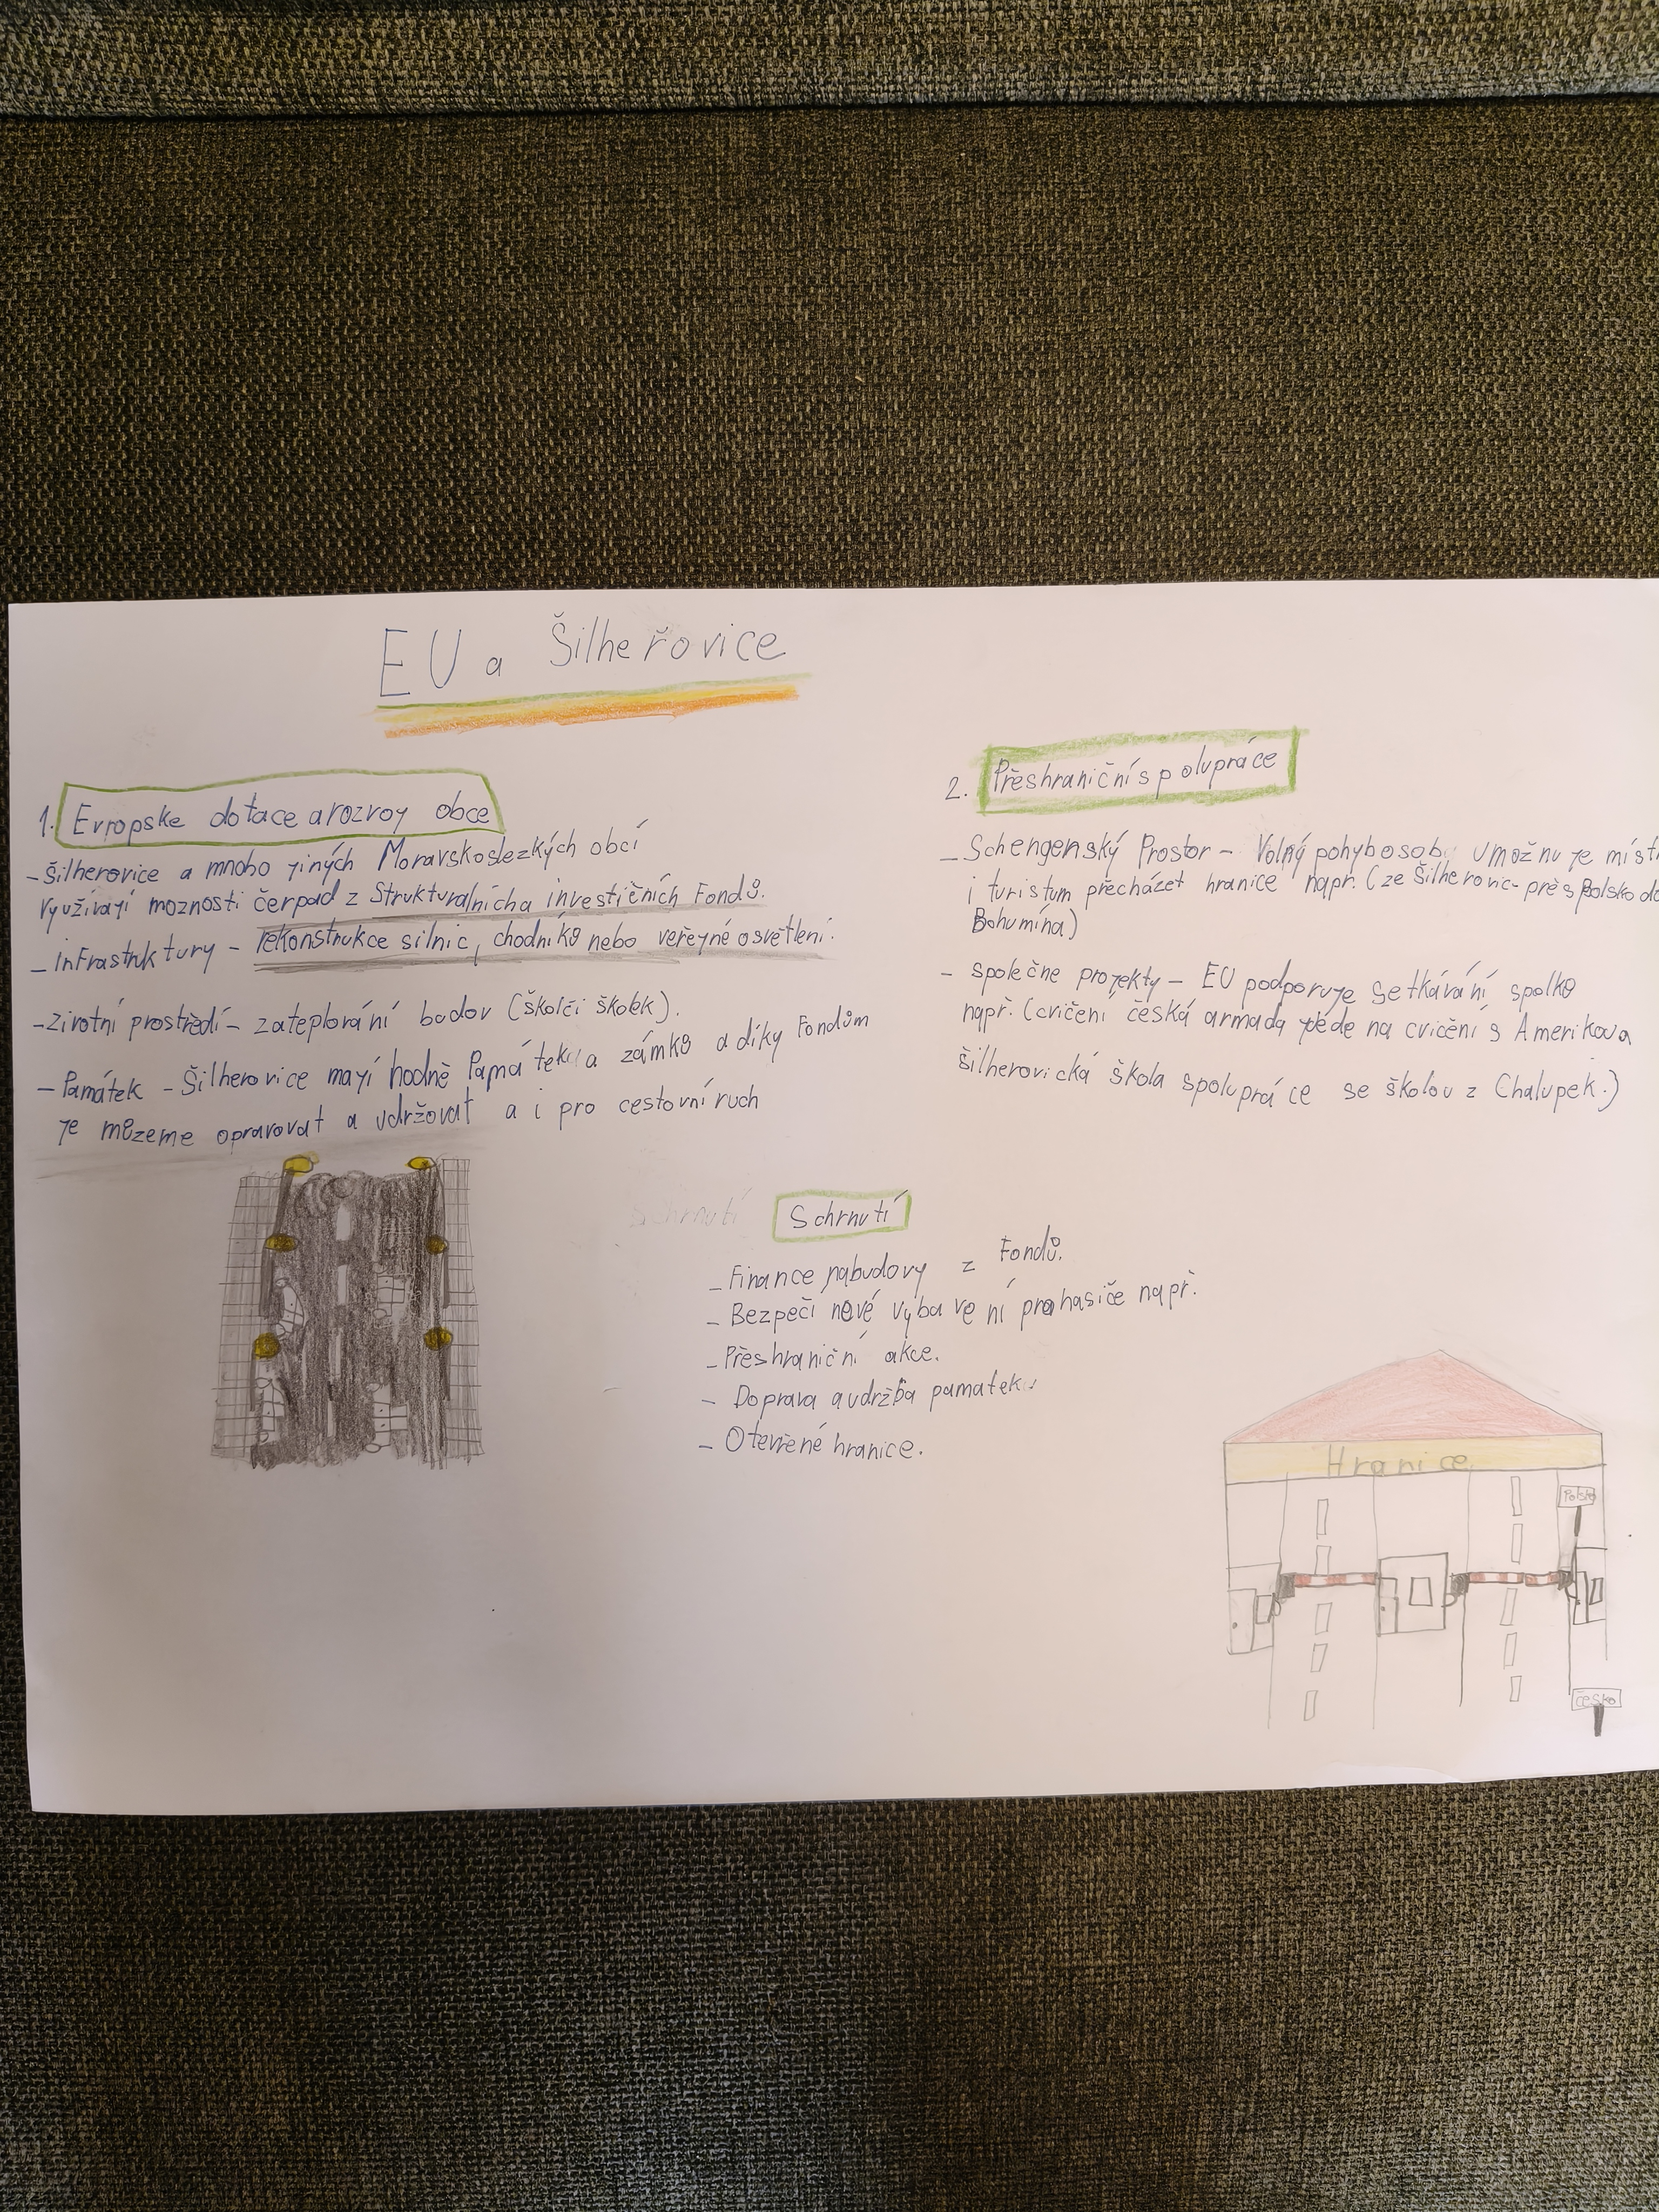 EU a Šilheřovice
1. Evropske dotace a rozvoj obce
- Šilherovice a mnoho jiných Moravskoslezkých obcí
využívají moznosti čerpad z Strukturalních a investičních Fondů.
- infrastruktury - rekonstrukce silnic, chodníků nebo veřejné osvětlení.
- Zivotní prostředí - zateplování budov (škol či školek).
- Památek - Šilherovice mají hodně Památek a zámků a díky Fondům
je můzeme opravovat a udržovat a i pro cestovní ruch
2. Přeshraniční spolupráce
- Schengenský Prostor - Volný pohyb osob umožnuje
i turistum přecházet hranice např. (ze Šilherovic přes Polsko do
Bohumína)
- společne projekty - EU podporuje setkávání spolků
např. (cvičení česká armada jede na cvičení s Amerikou a
šilherovická škola spolupráce se školou z Chalupek.)
Schrnutí
Schrnutí
- Finance na budovy z Fondů.
- Bezpečí nové vybavení pro hasiče např.
- Přeshraniční akce.
- Doprava a udržba pamatek
- Otevřené hranice.
Hranice
Polsko
Česko